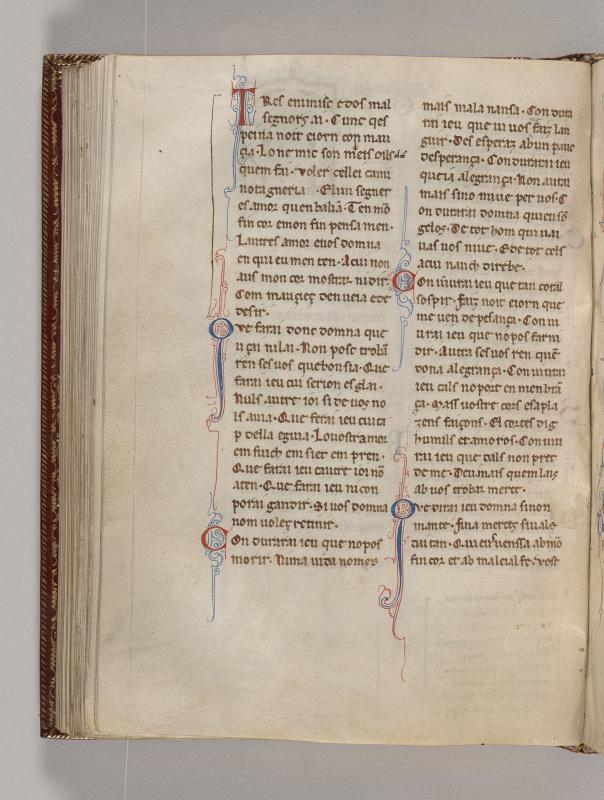 TRes enimisc e dos mal
segnors ai. Cunc qes
peina noit e iorn con mau
cia. Lo nemic son meis oils
quem fai. voler cellei cami
not agneria. El un segner
es amor quen bailia. Ten mō
fin cor e mon fin pensa men.
Lautres amor e uos domna
en qui eu men ten. A cui non
aus mon cor mostrar ni dir.
Com
desir.
Que farai donc domna que
u çai ni lai. Non posc trobā
ren ses uos que bon sia. Que
farai ieu cui serion esglai.
Nuls autre ioi si de uos no
ls auia. Que ferai ieu cui ca
p della e guia. Lo uostr amor
em fuich em siet em pren.
Que farai ieu cautre ioi nō
aten. Que farai ieu ni con
porai gandir. Si uos domna
nom uoles retenir.
Con durarai ieu que no pos
morir. Ni ma uida nomes
mais mala nansa. Con dura
rai ieu que ui uos faiz lan
guir. Desesperaz ab un pauc
desperança. Con durarai ieu
que ia alegrança. Non aurai
mais sino miue per uos. C
on durarai domna quieu sō
gelos. De tot hom qui uai
uas uos niue. E de tot cels
a cui nauch dir be.
Con uiurai ieu que tan coral
sospir. Faiz noit e iorn que
me uen de pesança. Con ui
urai ieu que no pos far ni
dir. Autra ses uos ren quē
dona alegrança. Con uiurai
ieu cals no port en menbrā
ça. Mass uostre cors e sa pla
zens faiçons. El cortes dig
humils et amoros. Con uiu
rai ieu que dals non prec
de me. Deu mais quem lais
ab uos trobar merce.
Que dirai ieu domna si non
mante. Fina merces si uals
cui tan. Quieu uenssa ab mō
fin cor et ab ma leial fe. vost